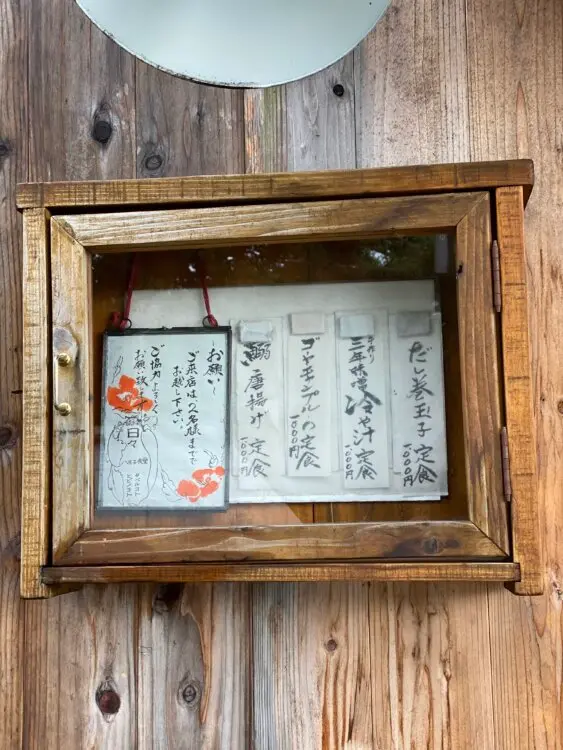 だし巻玉子定食
1000円
手作り
三年味噌冷や汁定食
1000円
ゴーヤチャンプルの定食
1000円
鰯唐揚げ定食
1000円
〜お願い〜
ご来店は2名様までで
お越し下さい。
ご協力よろしく
お願い致します
日々